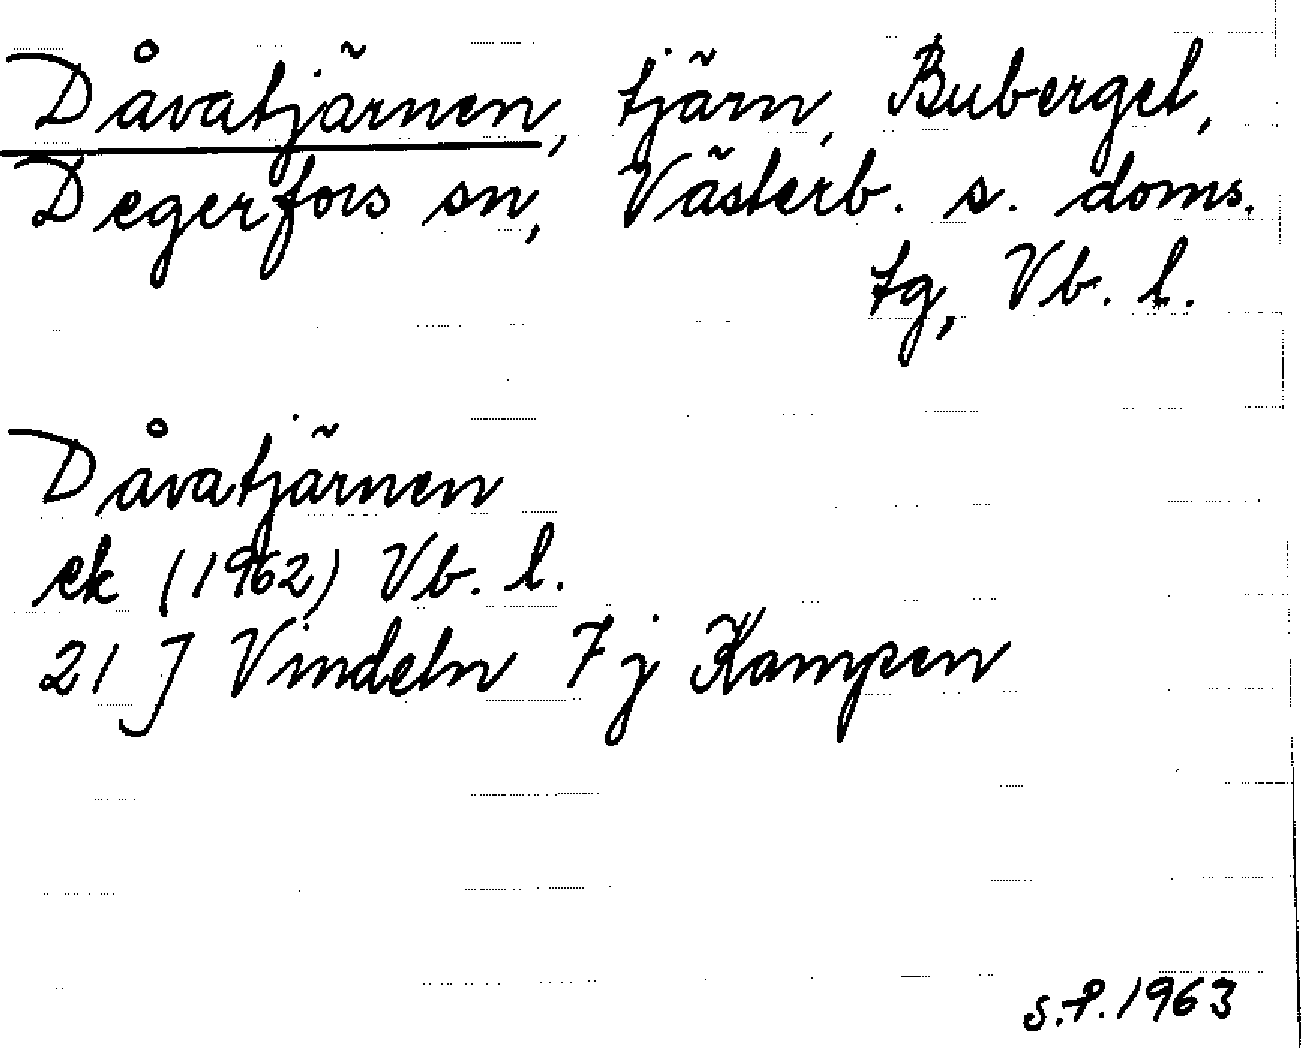 Dåvatjärnen, tjärn, Buberget,
Degerfors sn, Västerb. s. doms.
tg, Vb. l.
Dåvatjärnen
ek (1962) Vb. l.
21 J Vindeln 7 j Kampen
S.P. 1963